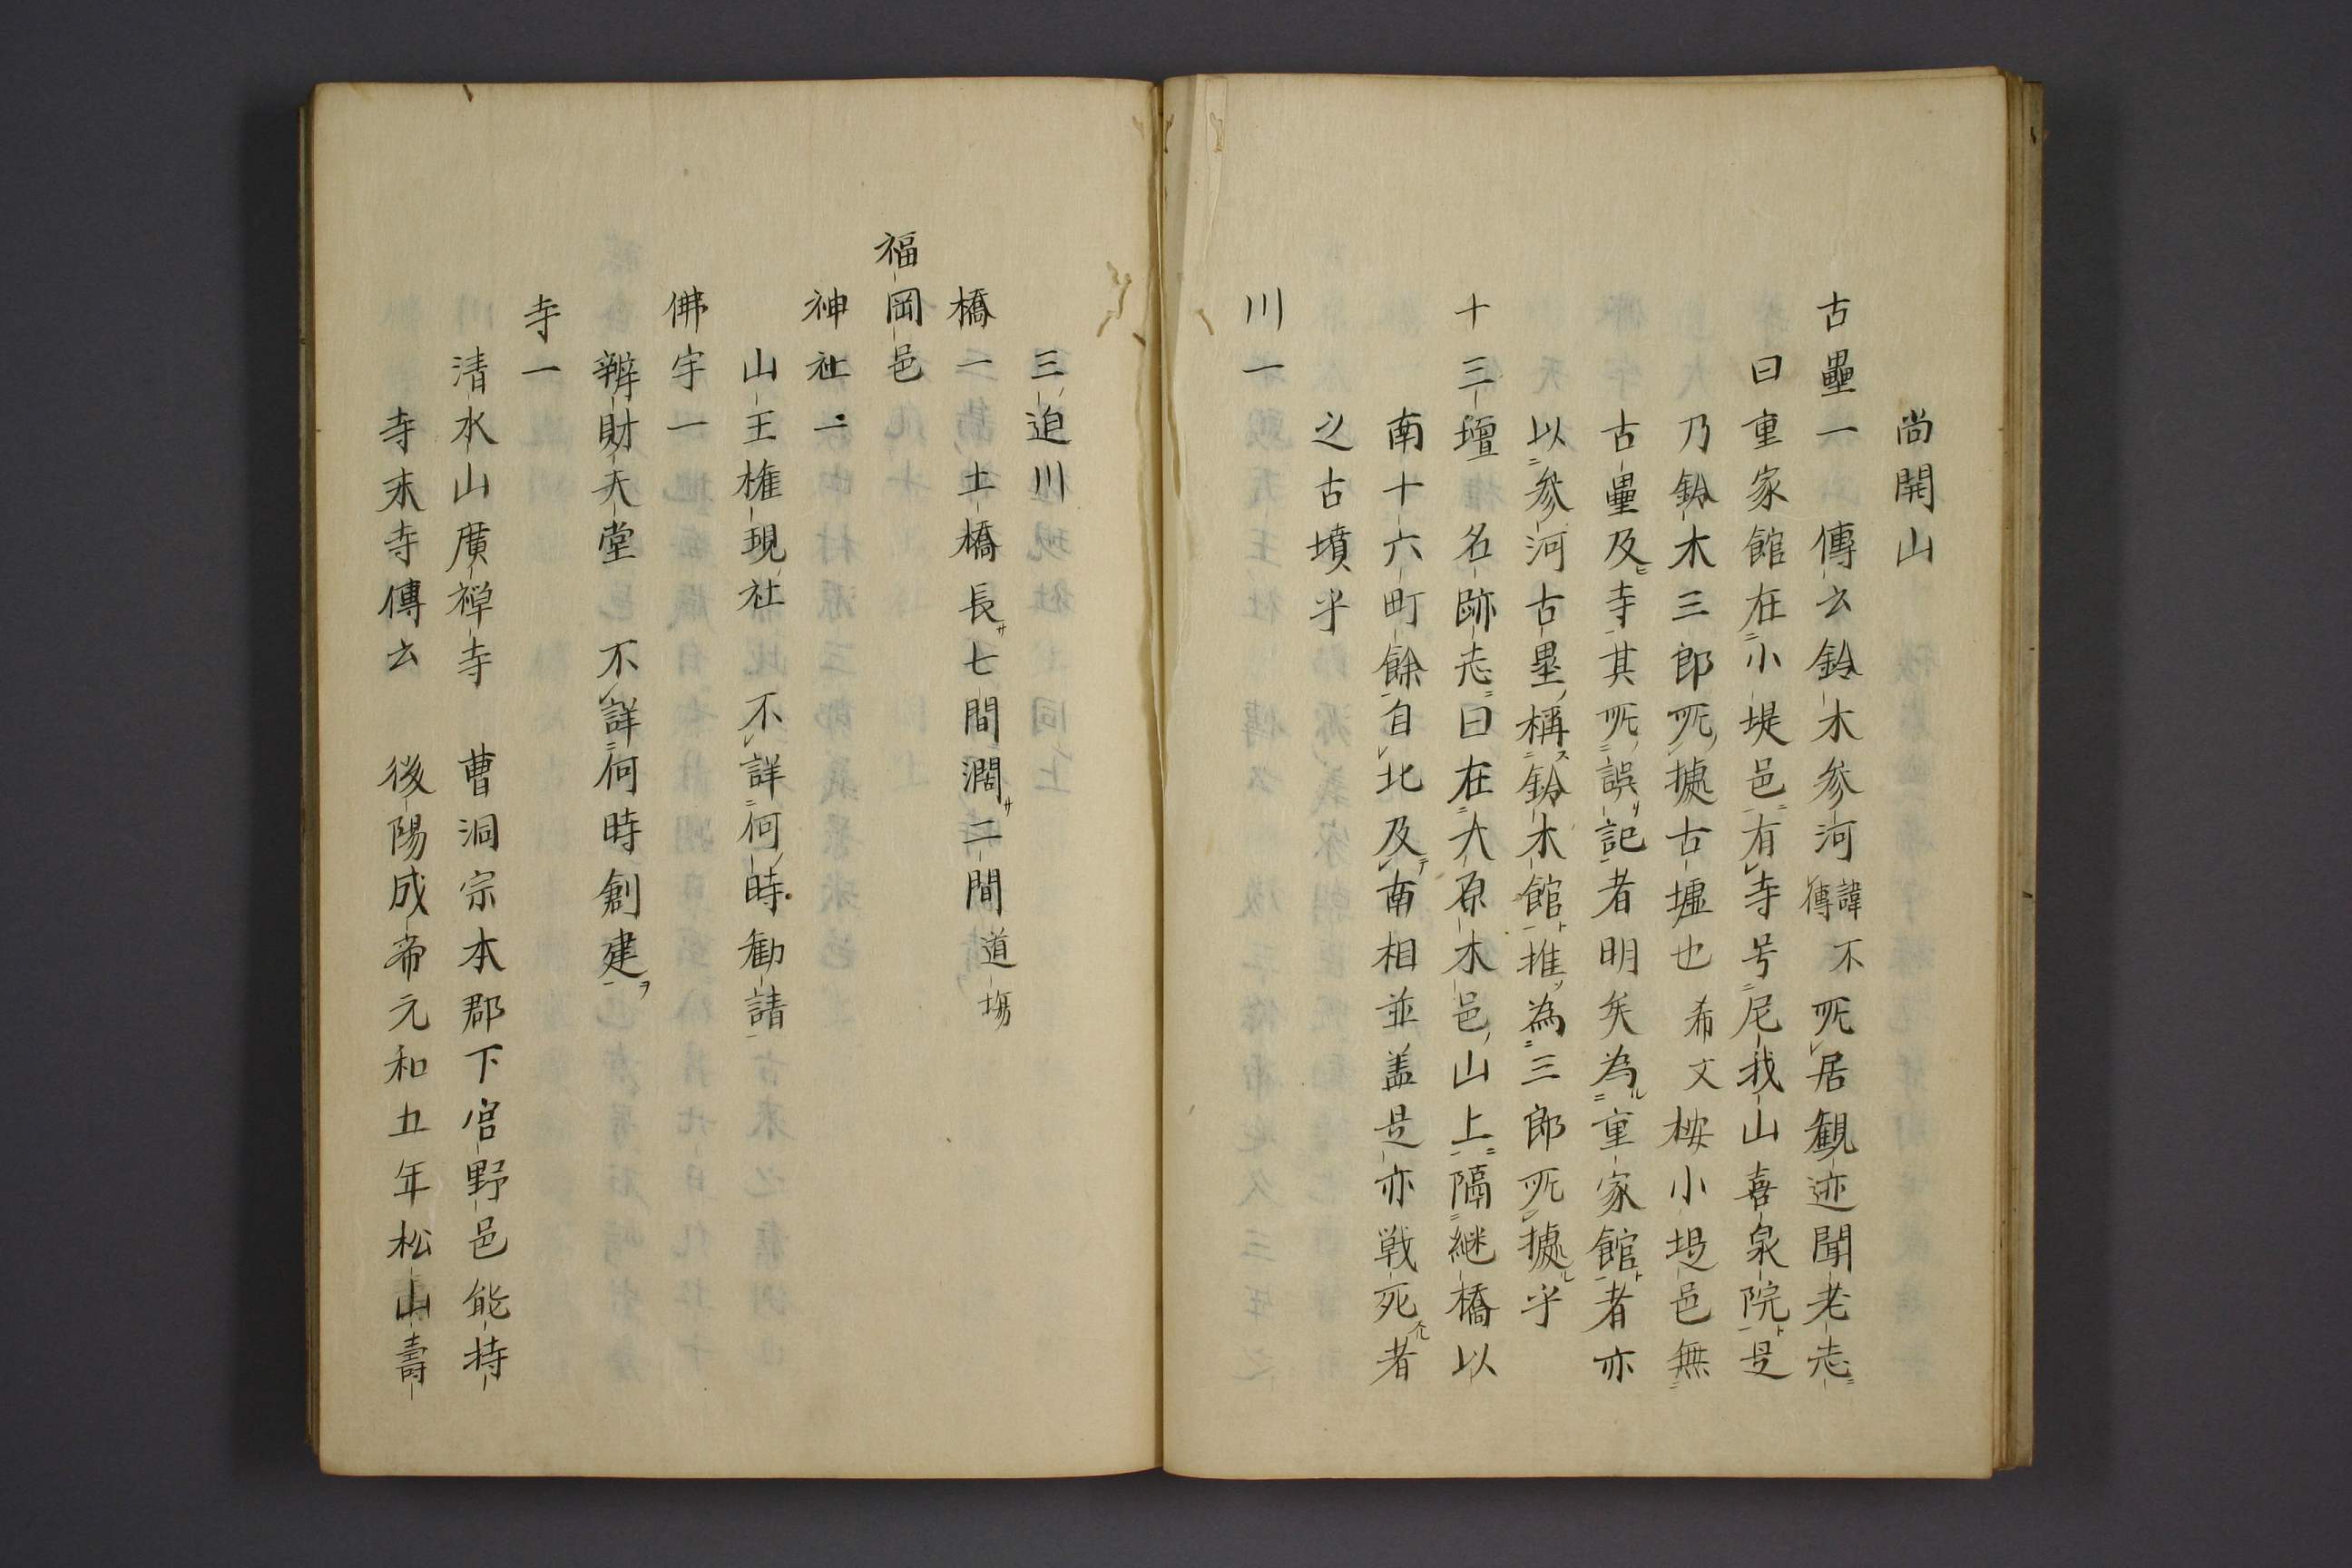 尚開山
古壘一 傳云鈴木参河諱不傳所居観迹聞老志
曰重家館在小堤邑有寺号尼我山喜泉院是
乃鈴木三郎所據古墟也希文桉小堤邑無
古壘及寺其所誤記者明矣為重家館者亦
以参河古塁稱鈴木館推為三郎所據乎
十三壇 名跡志曰在大原木邑山上隔継橋以
南十六町餘自北及南相並盖是亦戦死者
之古墳乎
川一
三迫川
橋一 土橋長サ七間濶サ二間道塲
福岡邑
神社一
山王権現社 不詳何時勧請
佛宇一
辨財天堂 不詳何時創建
寺一
清水山廣禅寺 曹洞宗本郡下宮野邑能持
寺末寺傳云 後陽成帝元和五年松山壽